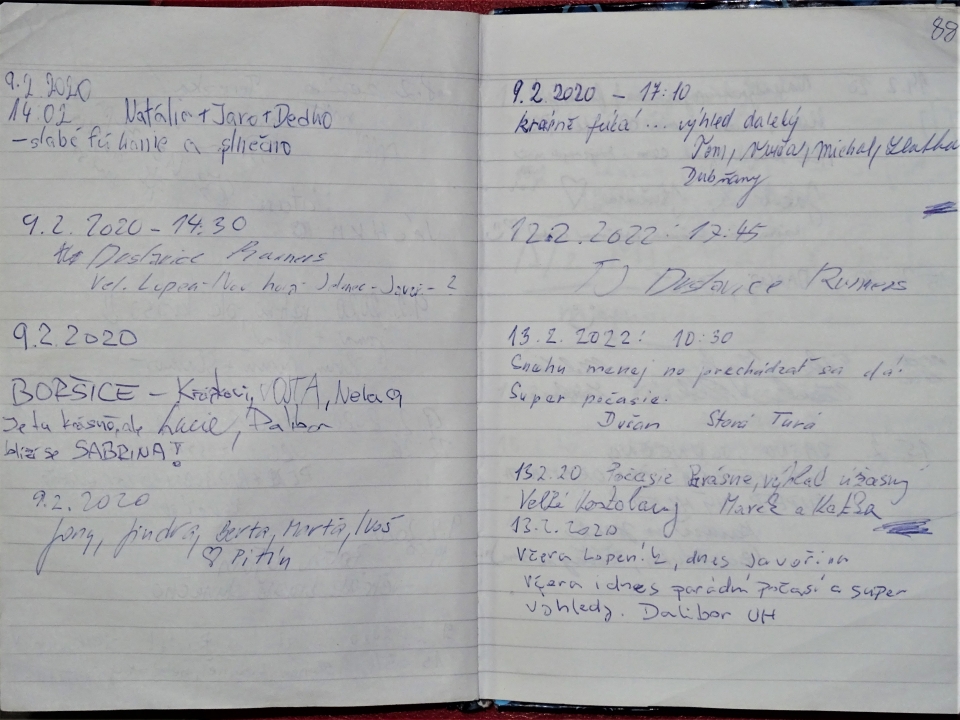 9.2.2020
14:02 Natália+Jaro+Dedko
- slabé fúkanie a slnečno
9.2.2020 - 14:30
Deslavice Runners
Vel. Lopen - Nov hory - - Javor - ?
9.2.2020
BORŠICE - VOJTA, Nela
Je tu krásně, ale Lucie, Dalibor
blíží se SABRINA!
9.2.2020
Jony, Jindra, Berta, Marta, Ivoš
♡ Pitín
88
9.2.2020 - 17:10
krásně fúká... výhled daleký
Tomi, Michal, Zlatka
Dubňany
12.2.2022: 17:45
TJ Runners
13.2.2022: 10:30
Snahu menej no prechádzať sa dá!
Super počasie.
Dušan Stará Turá
13.2.20 Počasie krásne, výhľad úžasný
Veľké Kostoľany Marek a Katka
13.2.2020
včera Lopeník, dnes Javořina
včera i dnes parádní počasí a super
výhledy. Dalibor UH